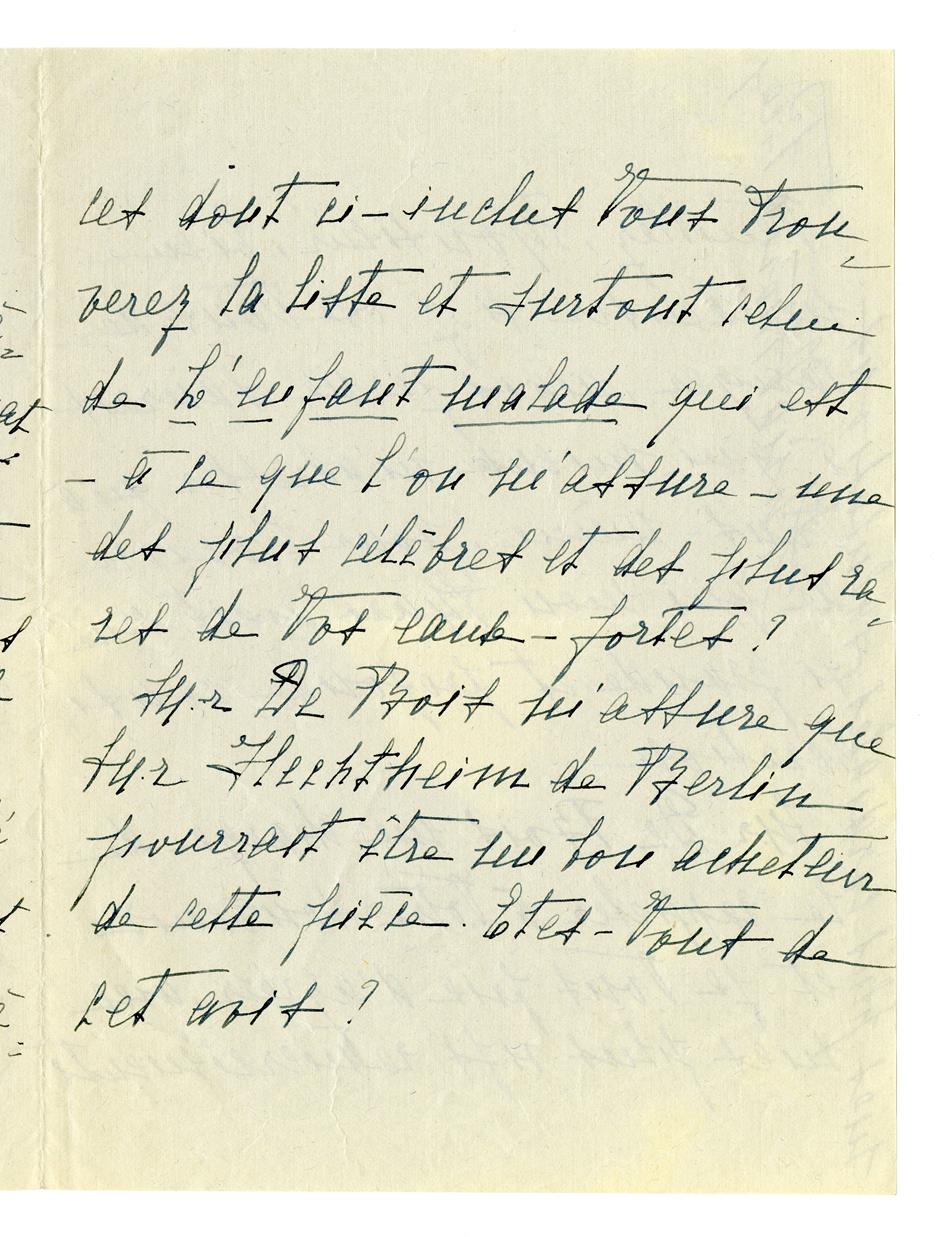 ces dont ci-inclus Vous trou-
verez la liste et surtout celui
de L'enfant malade qui est
– à ce que l'on m'assure – une
des plus célèbres et des plus ra-
res de Vos eaux-fortes ?
Mr De Bois m'assure que
Mr Hechtheim de Berlin
pourrait être un bon acheteur
de cette pièce. Etes-Vous de
cet avis ?